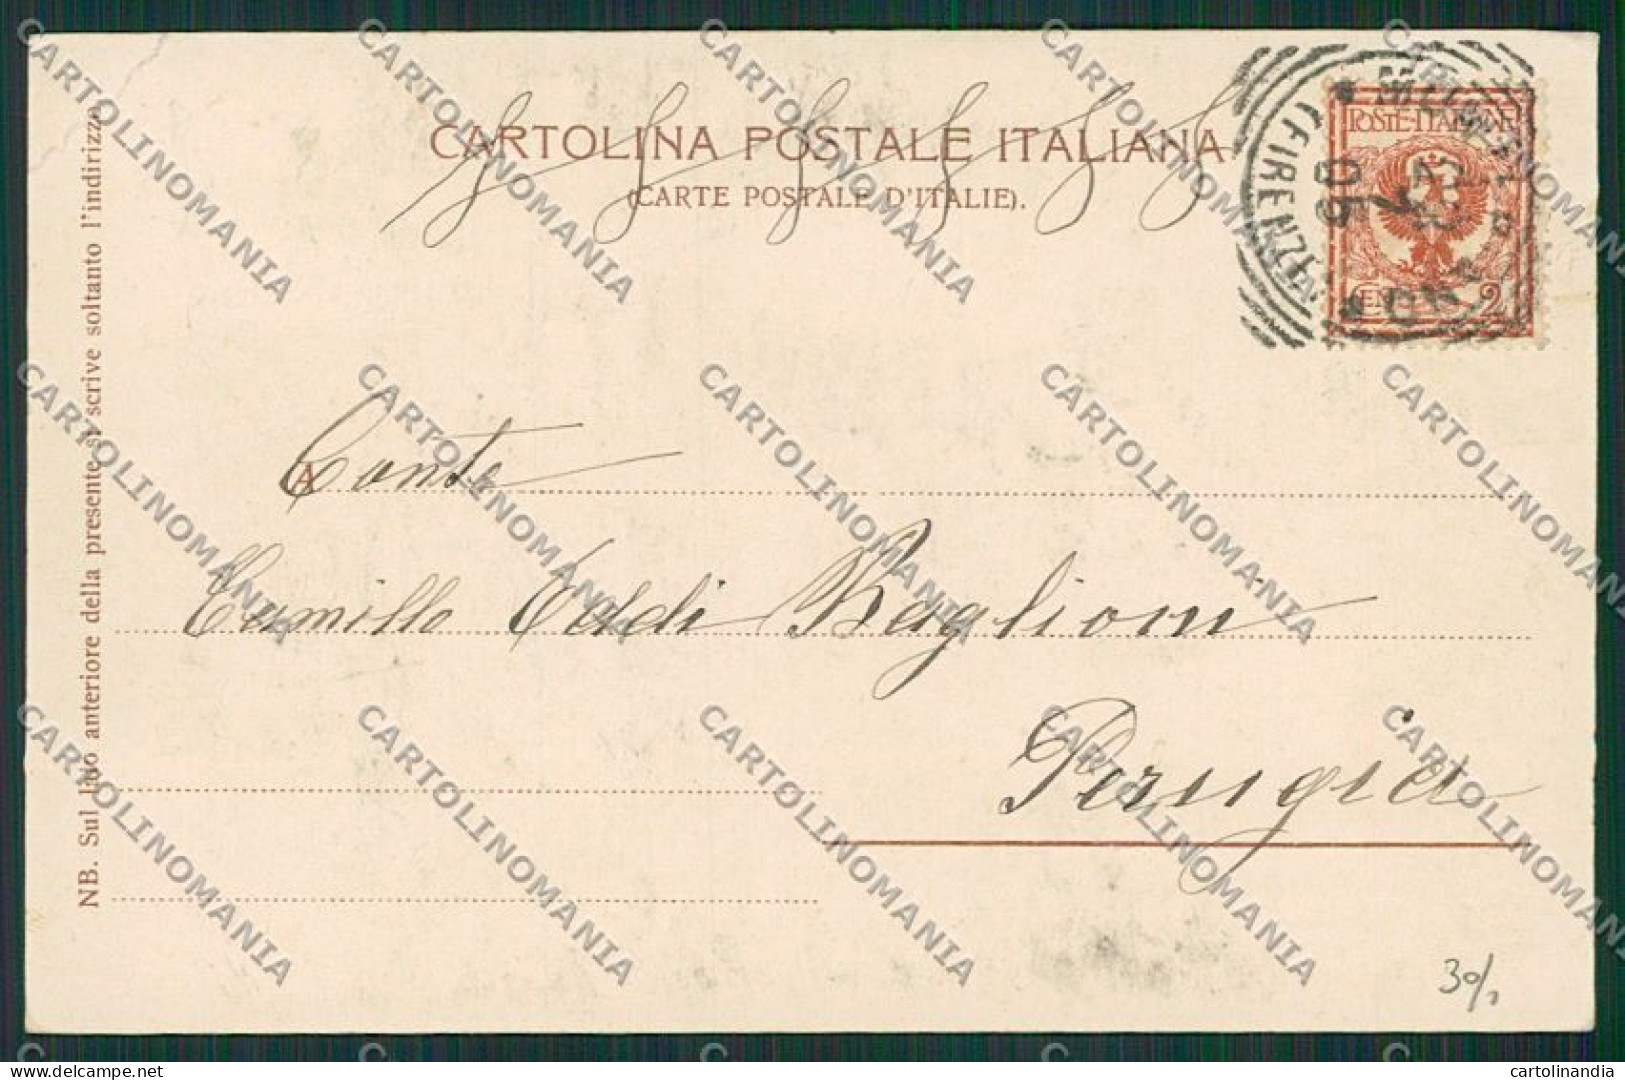 CARTOLINA POSTALE ITALIANA
(CARTE POSTALE D'ITALIE).
POSTE ITALIANE
CENT. 2
(FIRENZE)
05
NB. Sul lato anteriore della presente si scrive soltanto l'indirizzo
A
Conte
Camillo Oddi Baglioni
Perugia
30/1
CARTOLINOMANIA
cartolinandia